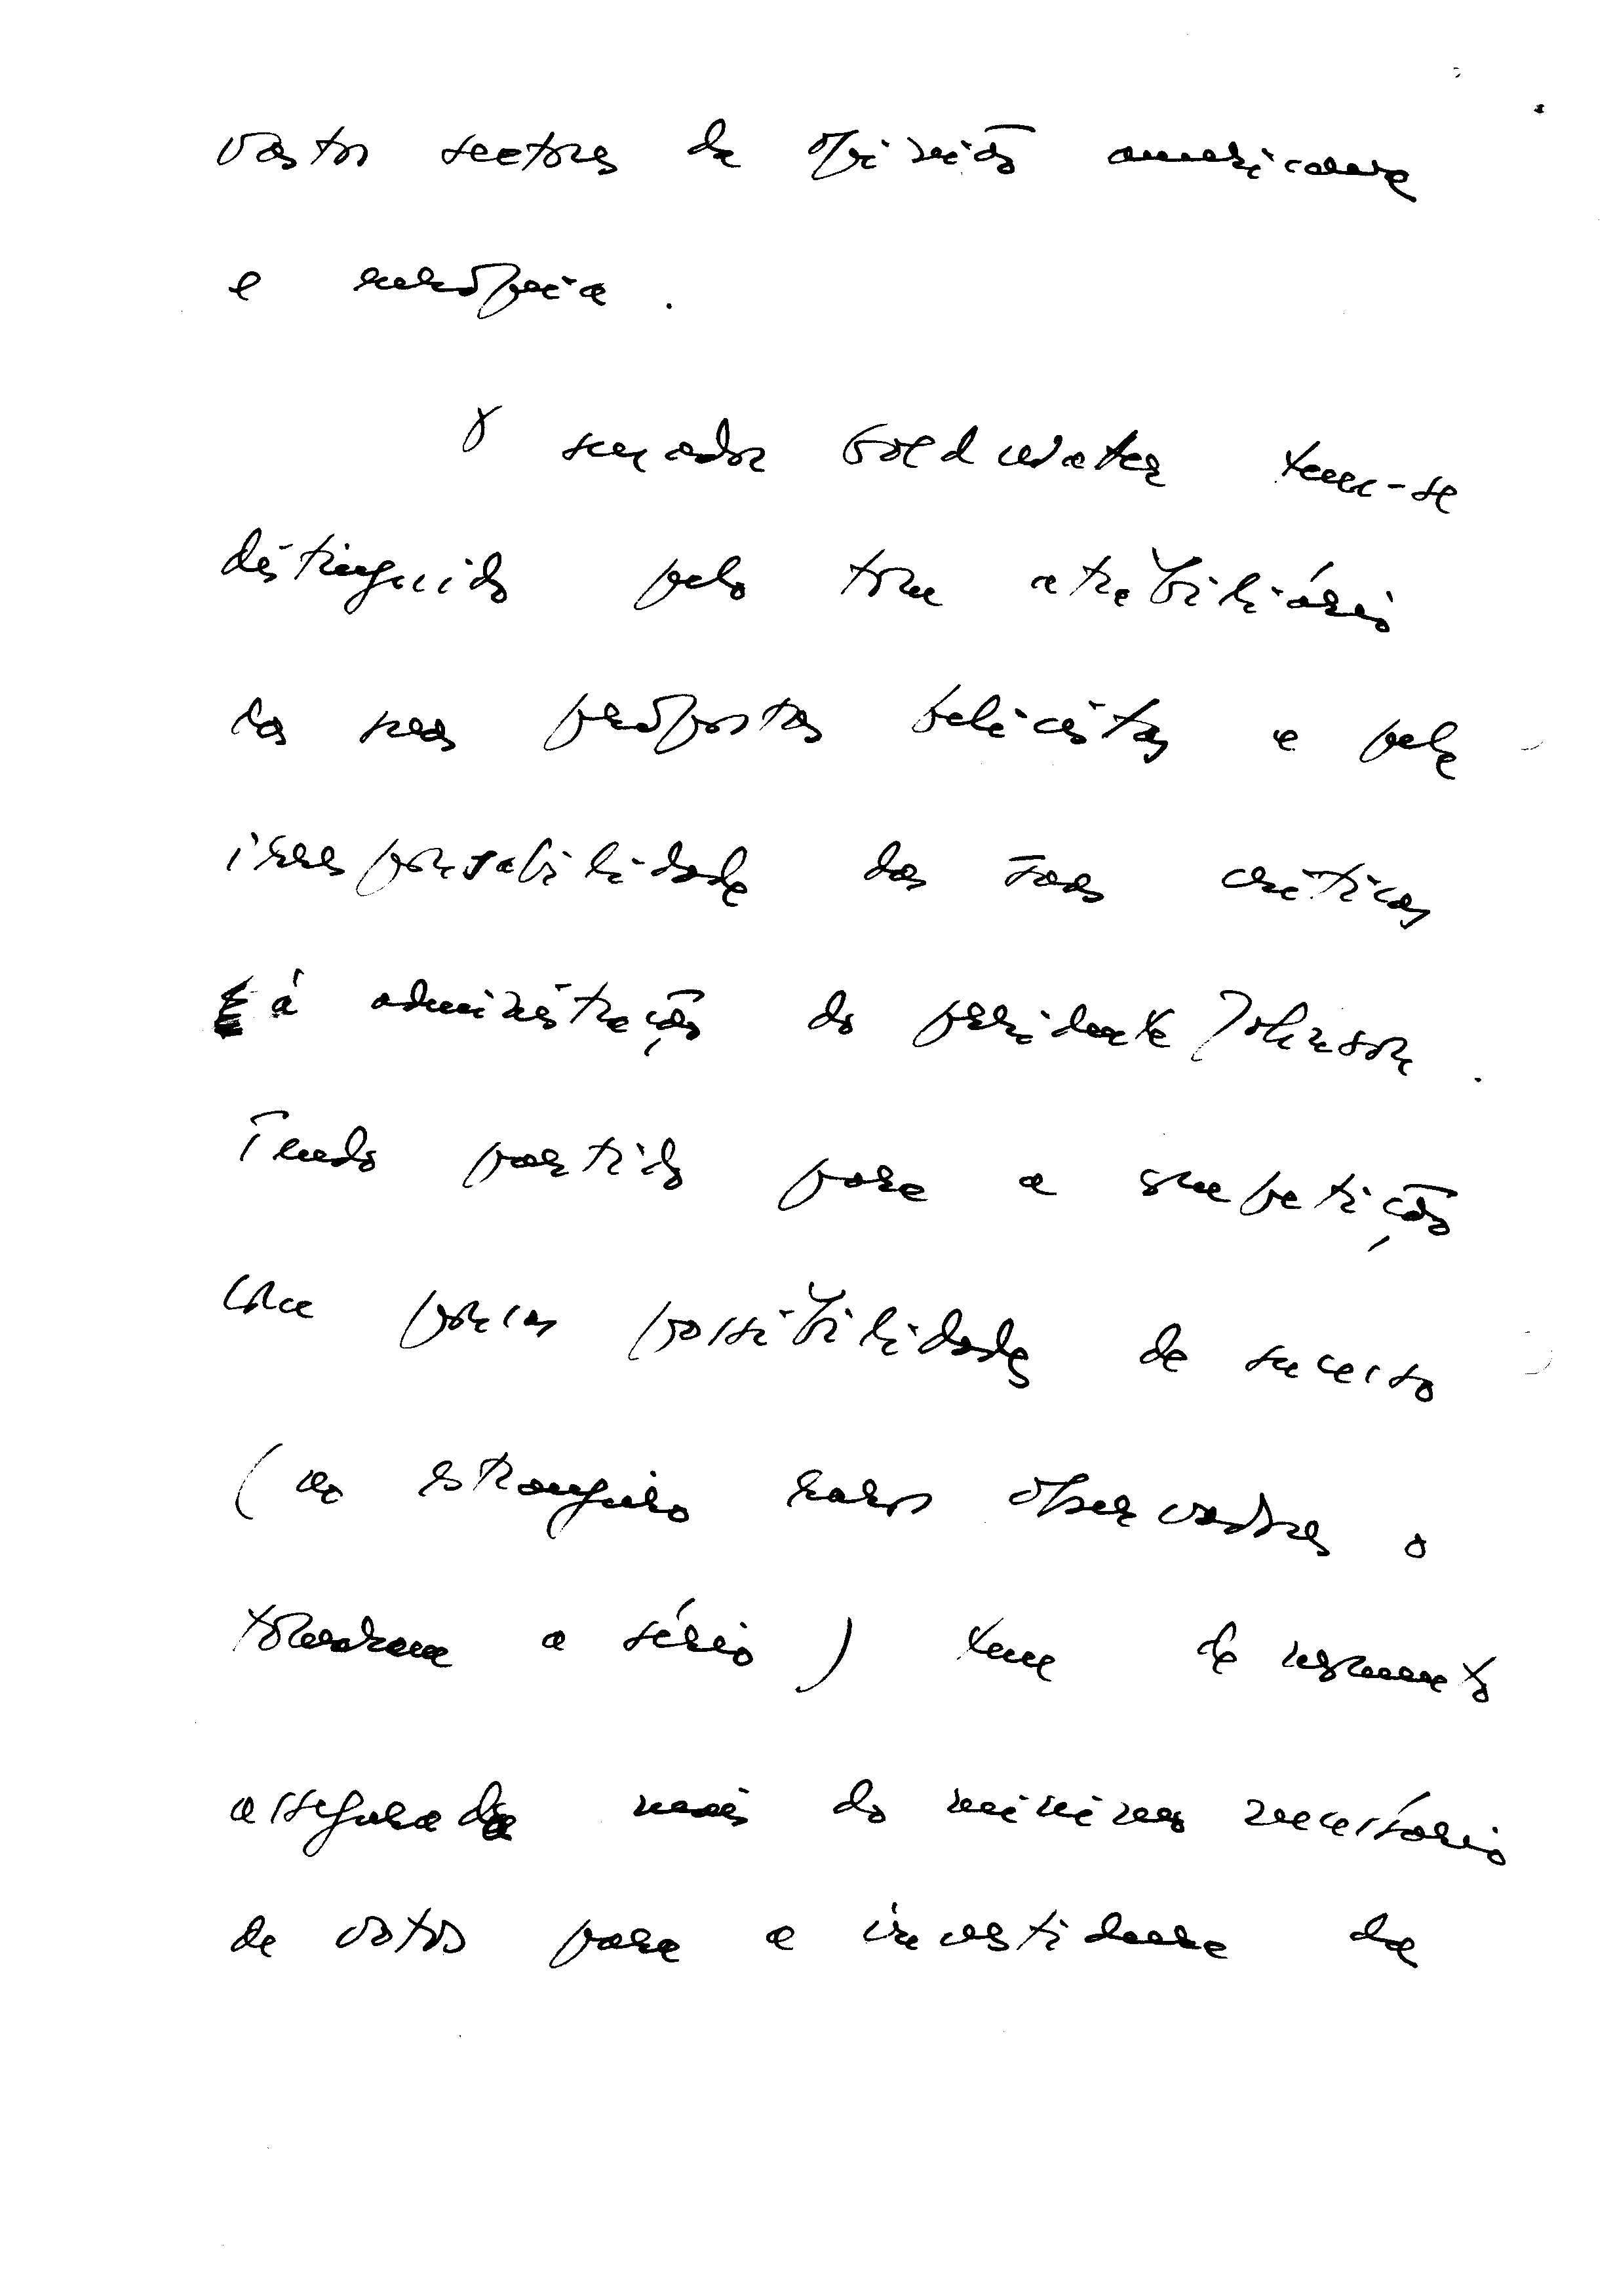 vastos sectores da opinião americana
e europeia.
O senador Goldwater tem-se
distinguido pelo tom atrabiliário
das suas propostas belicistas e pela
irresponsabilidade das suas críticas
à administração do presidente Johnson.
Tendo partido para a competição
com poucas possibilidades de sucesso
(no estrangeiro raros observadores o
tomaram a sério) tem de momento
assegurada mais do mínimo necessário
de votos para a investidura da